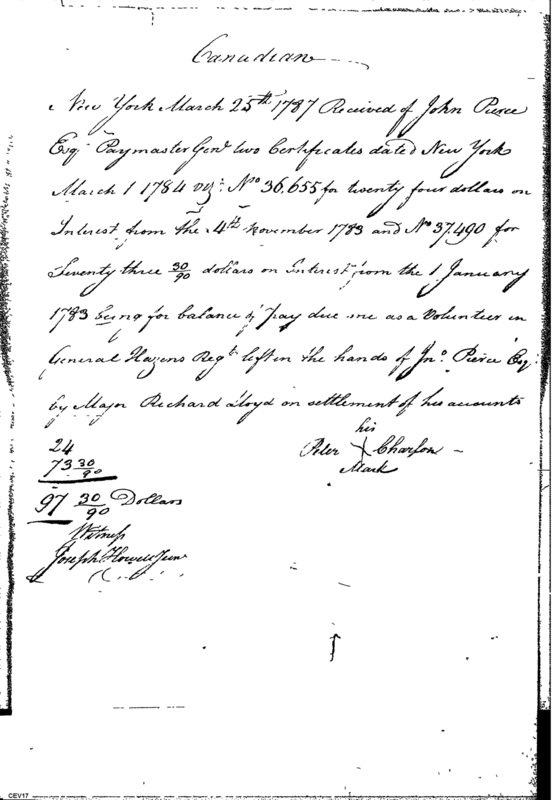 Canadian
New York March 25th 1787 Received of John Pierce
Esqr Paymaster Genl two Certificates dated New York
March 1 1784 viz: No 36.655 for twenty four dollars on
Interest from the 4th November 1783 and No 37.490 for
Seventy three 30/90 dollars on Interest from the 1 January
1783 being for balance of pay due me as a Volunteer in
General Hazens Regt left in the hands of Jno. Pierce Esqr
by Major Richard Lloyd on settlement of his accounts
his
Peter X Charfon
Mark
24
73 30/90
97 30/90 Dollars
Witness
Joseph Howell Junr
CEV17